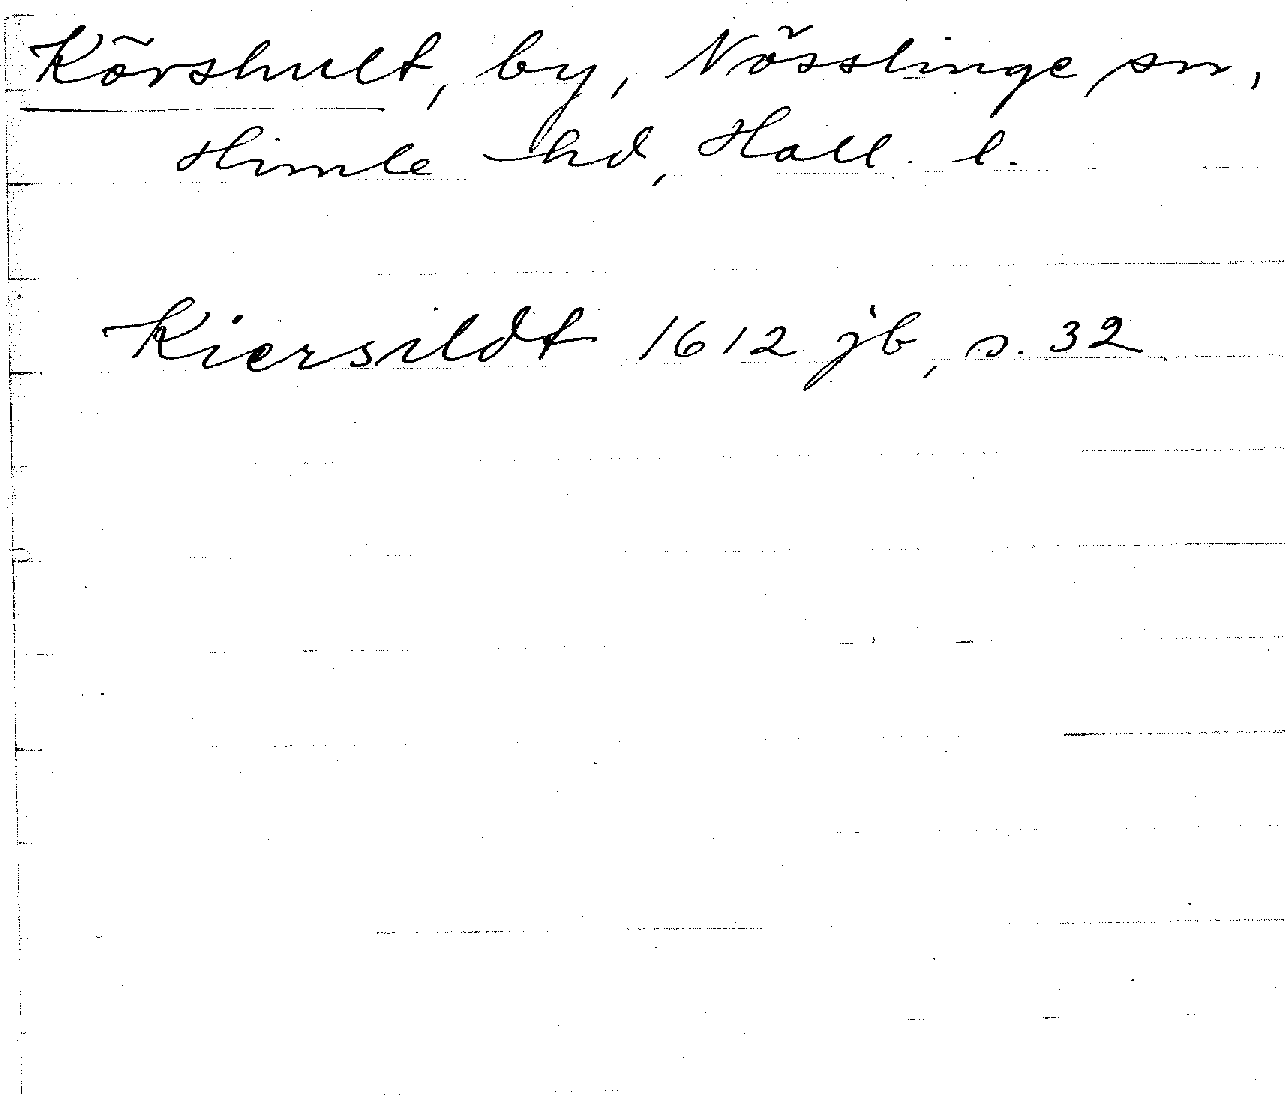 Körshult, by, Nösslinge sn,
Himle hd, Hall. l.
Kiersildt 1612 jb, s. 32